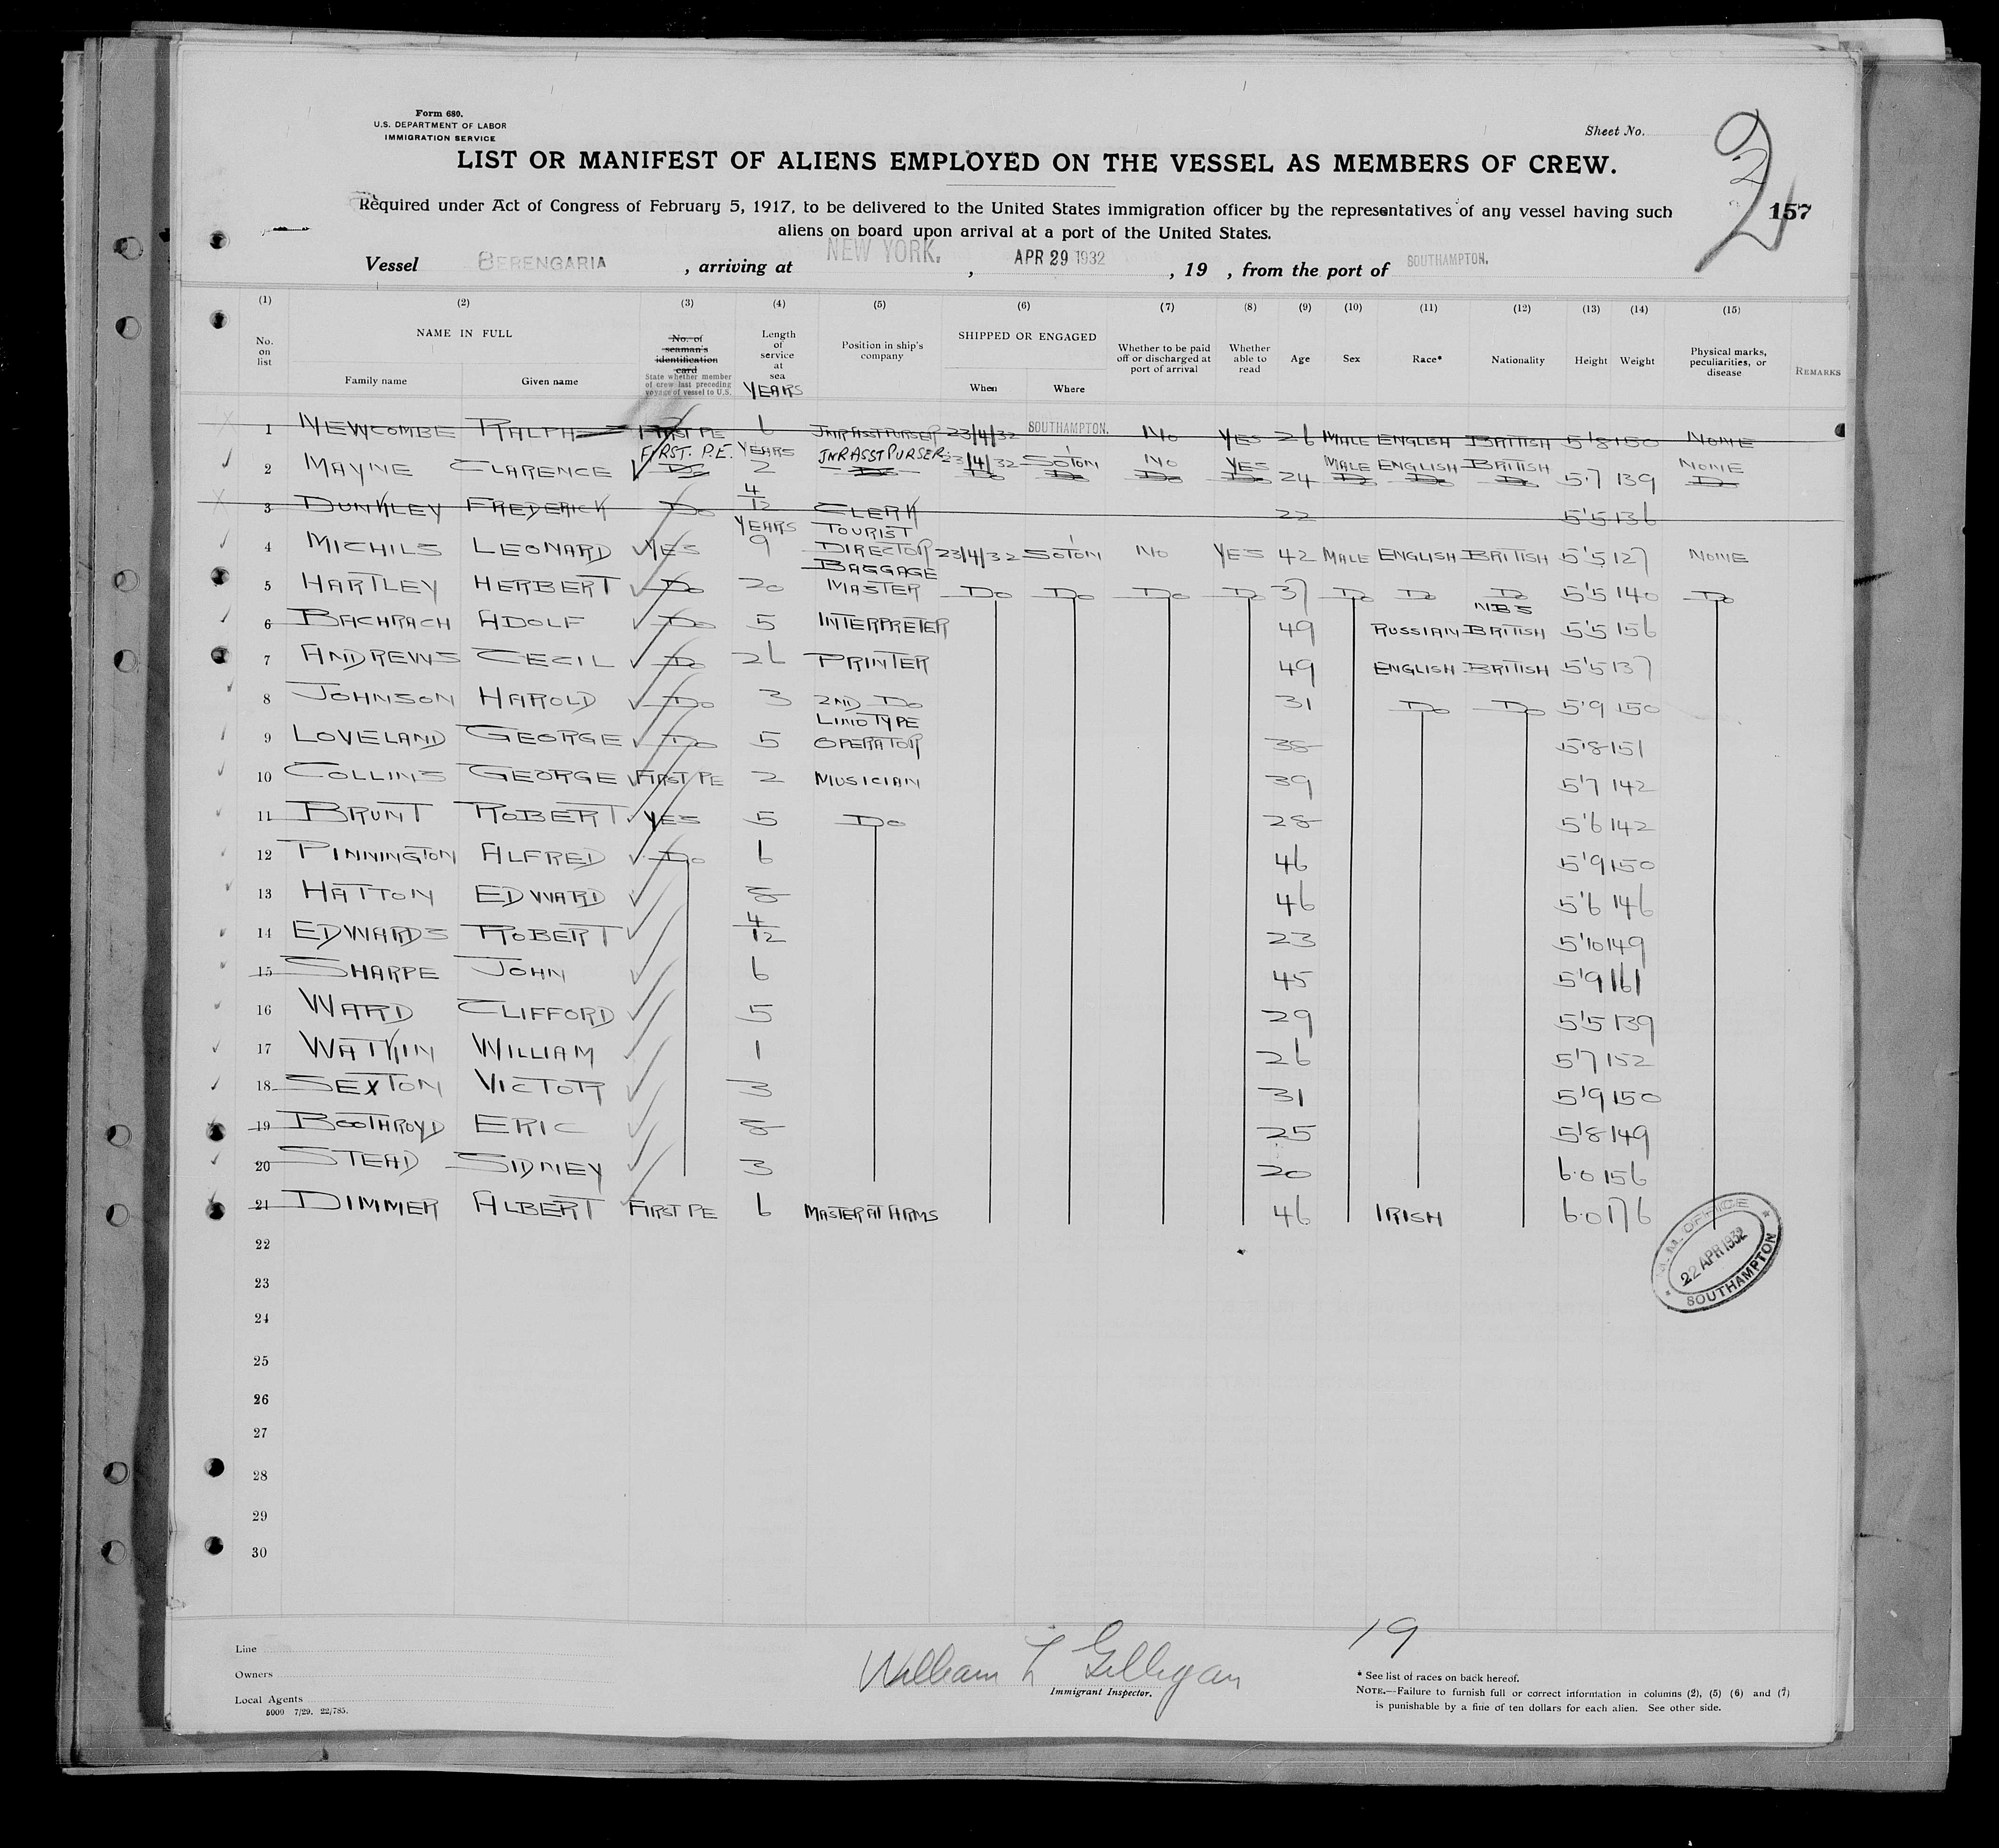 Form 680.
U.S. DEPARTMENT OF LABOR
IMMIGRATION SERVICE
Sheet No.
LIST OR MANIFEST OF ALIENS EMPLOYED ON THE VESSEL AS MEMBERS OF CREW.
Required under Act of Congress of February 5, 1917, to be delivered to the United States immigration officer by the representatives of any vessel having such
157
aliens on board upon arrival at a port of the United States.
Vessel BERENGARIA , arriving at NEW YORK. , APR 29 1932 , 19 , from the port of SOUTHAMPTON.
(1) (2) (3) (4) (5) (6) (7) (8) (9) (10) (11) (12) (13) (14) (15)
No. on list NAME IN FULL Family name Given name No. of seaman's identification card State whether member of crew last preceding voyage of vessel to U.S. Length of service at sea YEARS Position in ship's company SHIPPED OR ENGAGED When Where Whether to be paid off or discharged at port of arrival Whether able to read Age Sex Race* Nationality Height Weight Physical marks, peculiarities, or disease REMARKS
1 NEWCOMBE RALPH FIRST PE 6 JNR ASST PURSER 23/4/32 SOUTHAMPTON. NO YES 26 MALE ENGLISH BRITISH 5'8 150 NONE
FIRST. P.E. YEARS JNR ASST PURSER 23/4/32 SOTON NO YES MALE ENGLISH BRITISH NONE
2 MAYNE CLARENCE DO 2 DO DO DO DO DO 24 DO DO DO 5'7 139 DO
3 DUNKLEY FREDERICK DO 4/12 CLERK 22 5'5 136
4 MICHILS LEONARD YES YEARS 9 TOURIST DIRECTOR 23/4/32 SOTON NO YES 42 MALE ENGLISH BRITISH 5'5 127 NONE
5 HARTLEY HERBERT DO 20 BAGGAGE MASTER DO DO DO DO 37 DO DO DO 5'5 140 DO
6 BACHRACH ADOLF DO 5 INTERPRETER 49 RUSSIAN NBS BRITISH 5'5 156
7 ANDREWS CECIL DO 26 PRINTER 49 ENGLISH BRITISH 5'5 137
8 JOHNSON HAROLD DO 3 2ND DO 31 DO DO 5'9 150
9 LOVELAND GEORGE DO 5 LINOTYPE OPERATOR 38 5'8 151
10 COLLINS GEORGE FIRST PE 2 MUSICIAN 39 5'7 142
11 BRUNT ROBERT YES 5 DO 28 5'6 142
12 PINNINGTON ALFRED DO 6 46 5'9 150
13 HATTON EDWARD 8 46 5'6 146
14 EDWARDS ROBERT 4/12 23 5'10 149
15 SHARPE JOHN 6 45 5'9 161
16 WARD CLIFFORD 5 29 5'5 139
17 WATKIN WILLIAM 1 26 5'7 152
18 SEXTON VICTOR 3 31 5'9 150
19 BOOTHROYD ERIC 8 25 5'8 149
20 STEAD SIDNEY 3 20 6.0 156
21 DIMMER ALBERT FIRST PE 6 MASTER AT ARMS 46 IRISH 6.0 176
22
23
24
25
26
27
28
29
30
M.M. OFFICE
22 APR 1932
SOUTHAMPTON
19
Line
Owners
Local Agents
5000 7/29. 22/785.
William L Gilligan
Immigrant Inspector.
* See list of races on back hereof.
NOTE.—Failure to furnish full or correct information in columns (2), (5) (6) and (7)
is punishable by a fine of ten dollars for each alien. See other side.